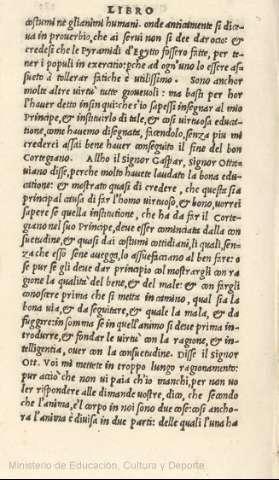 LIBRO
costumi ne gli animi humani. onde anticamente si dice
ua in prouerbio, che ai serui non si dee dar ocio: &
credesi che le Pyramidi d'Egytto fossero fatte, per te-
ner i populi in exercitio: pche ad ogn'uno lo essere as-
sueto à tollerar fatiche è utilissimo. Sono anchor
molte altre uirtu tutte gioueuoli: ma basti per hor
l'hauer detto insin qui: che s'io sapessi insegnar al mio
Principe, & instituirlo di tale, & cosi uirtuosa educa-
tione, come hauemo disegnata, facendolo, senza piu mi
crederei assai bene hauer conseguito il fine del bon
Cortegiano. Allho il Signor Gaspar, signor Otta-
uiano disse, perche molto hauete laudato la bona edu-
catione: & mostrato quasi di credere, che questa sia
principal causa di far l'homo uirtuoso, & bono, uorrei
sapere se quella institutione, che ha da far il Corte-
giano nel suo Principe, deue esser cominciata dalla con
suetudine, & quasi dai costumi cottidiani, li quali, sen-
za che esso sene auegga, lo assuefacciano al ben fare: o
se pur se gli deue dar principio col mostrargli con ra
gione la qualità del bene, & del male: & con fargli
conoscere prima che si metta in camino, qual sia la
bona uia, & da seguitare, & quale la mala, & da
fuggire: in somma se in quell'animo si deue prima in-
trodurre, & fondar le uirtu con la ragione, & in-
telligentia, ouer con la consuetudine. Disse il signor
Ott. Voi mi mettete in troppo lungo ragionamento:
pur acciò che non ui paia ch'io manchi, per non uo
ler rispondere alle dimande uostre, dico, che secondo
che l'anima, e'l corpo in noi sono due cose: cosi ancho-
ra l'anima è diuisa in due parti: delle quali l'una ha
Ministerio de Educación, Cultura y Deporte